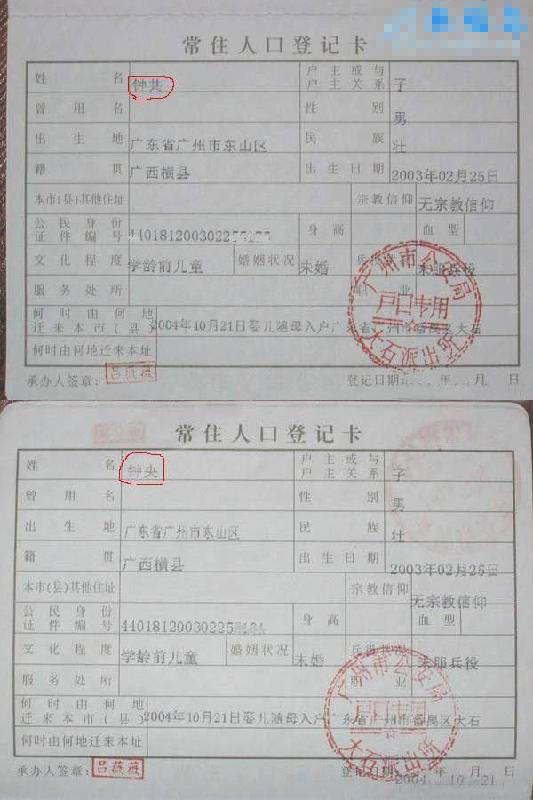 常住人口登记卡
姓名 钟共 户主或与户主关系 子
曾用名 性别 男
出生地 广东省广州市东山区 民族 壮
籍贯 广西横县 出生日期 2003年02月25日
本市(县)其他住址 宗教信仰 无宗教信仰
公民身份证件编号 身高 血型
文化程度 学龄前儿童 婚姻状况 未婚 兵役 未服兵役
服务处所 业
何时由何地迁来本市(县) 2004年10月21日婴儿随母入户广东省广州市番禺区大石
何时由何地迁来本址
承办人签章: 吕薇薇 登记日期 月 日
广州市公安局
户口专用
大石派出所
常住人口登记卡
姓名 钟央 户主或与户主关系 子
曾用名 性别 男
出生地 广东省广州市东山区 民族 壮
籍贯 广西横县 出生日期 2003年02月25日
本市(县)其他住址 宗教信仰 无宗教信仰
公民身份证件编号 身高 血型
文化程度 学龄前儿童 婚姻状况 未婚 兵役状况 未服兵役
服务处所 职业
何时由何地迁来本市(县) 2004年10月21日婴儿随母入户广东省广州市番禺区大石
何时由何地迁来本址
承办人签章: 吕薇薇 登记日期: 2004 年 10 月 21 日
广州市公安局
户口专用
大石派出所